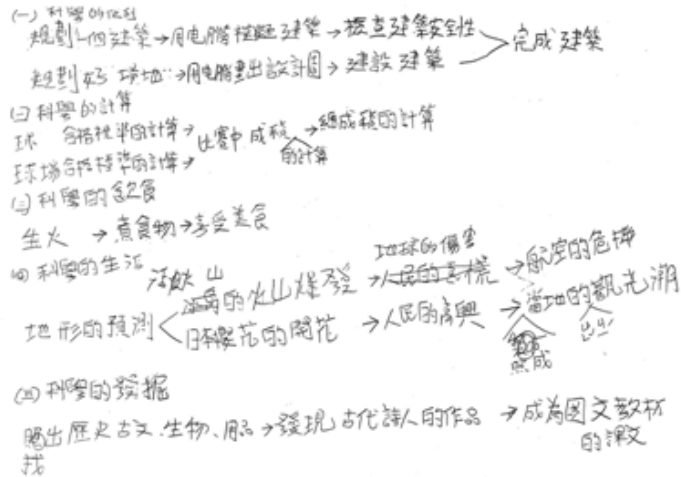 (一) 科學的
規劃一個建築→用電腦模擬建築→檢查建築安全性
規劃好 場地→用电腦畫出設計圖→建設建築
完成建築
(二) 科學的計算
球 合格標準的計算→
球場合格標準的計算→
比賽中成績→總成績的計算
的計算
(三) 科學的飲食
生火→煮食物→享受美食
(四) 科學的生活
地球的傷害
的火山爆發→人民的→航空的危機
地形的預測
日本櫻花的開花→人民的高興→當地的觀光潮
造成 出
(五) 科學的發掘
出歷史古文、生物、用品→發現古代詩人的作品→成為國文教材
找 的課文